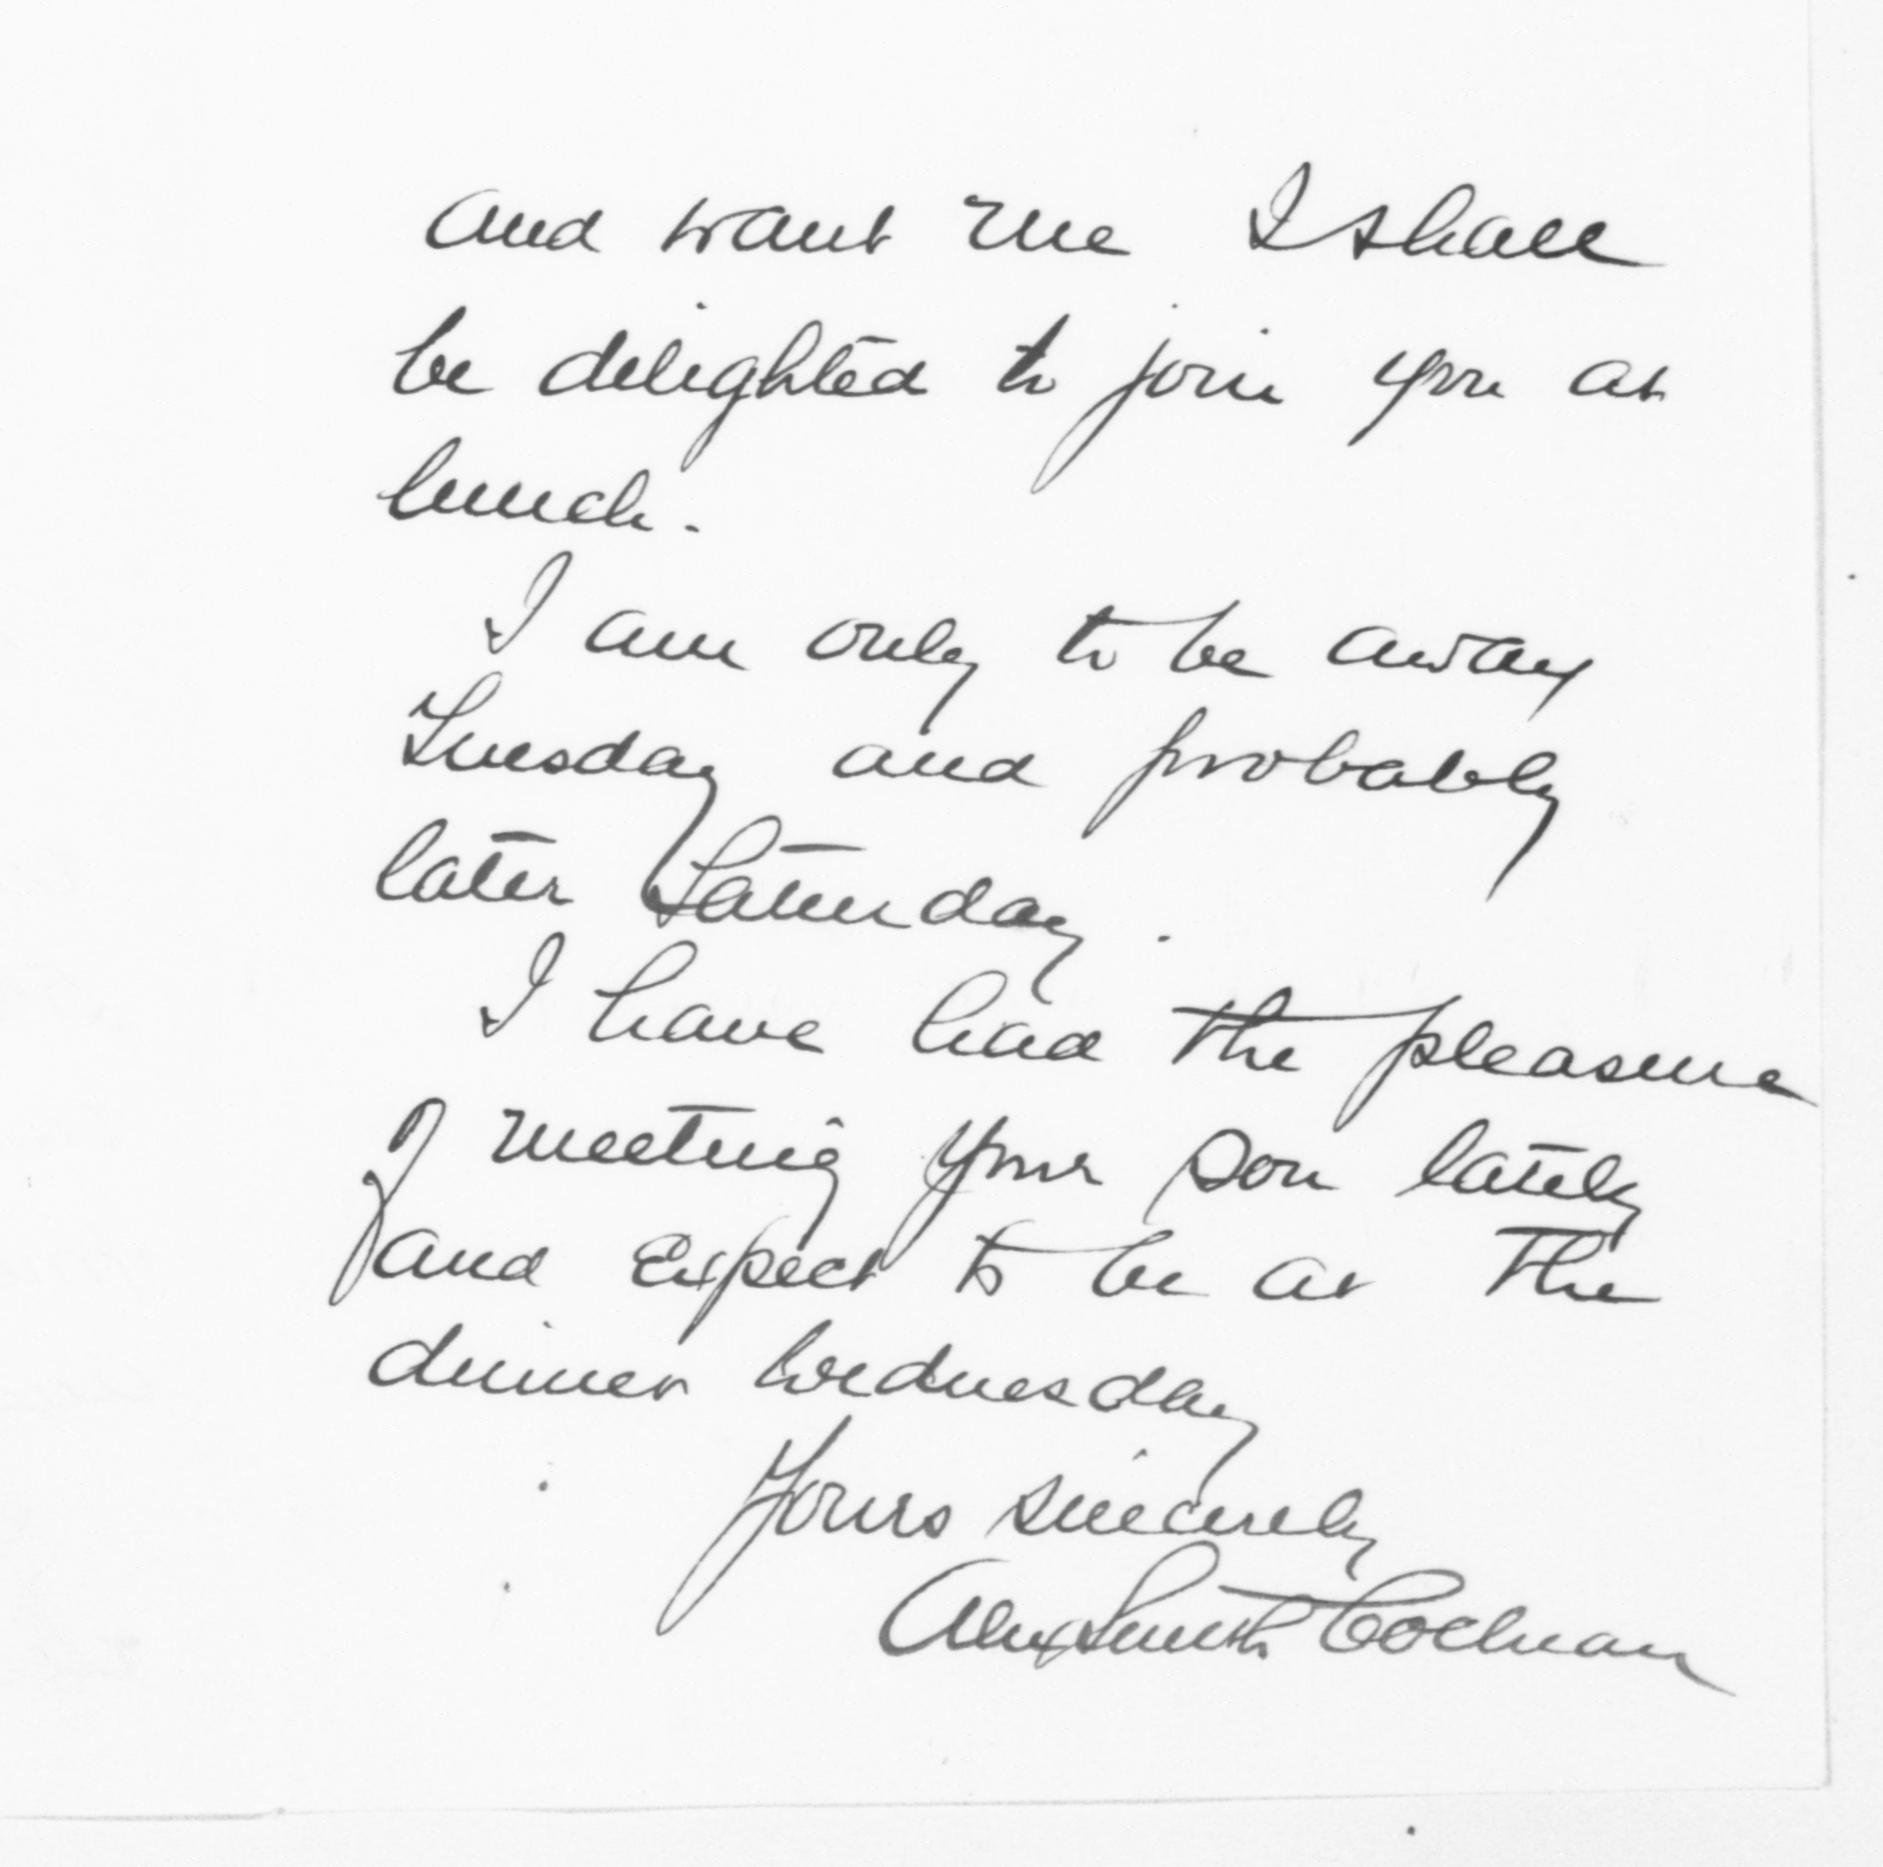 and want me I shall
be delighted to join you at
lunch.
I am only to be away
Tuesday and probably
later Saturday.
I have had the pleasure
of meeting your son lately
and expect to be at the
dinner Wednesday
Yours sincerely
Alex Smith Cochran